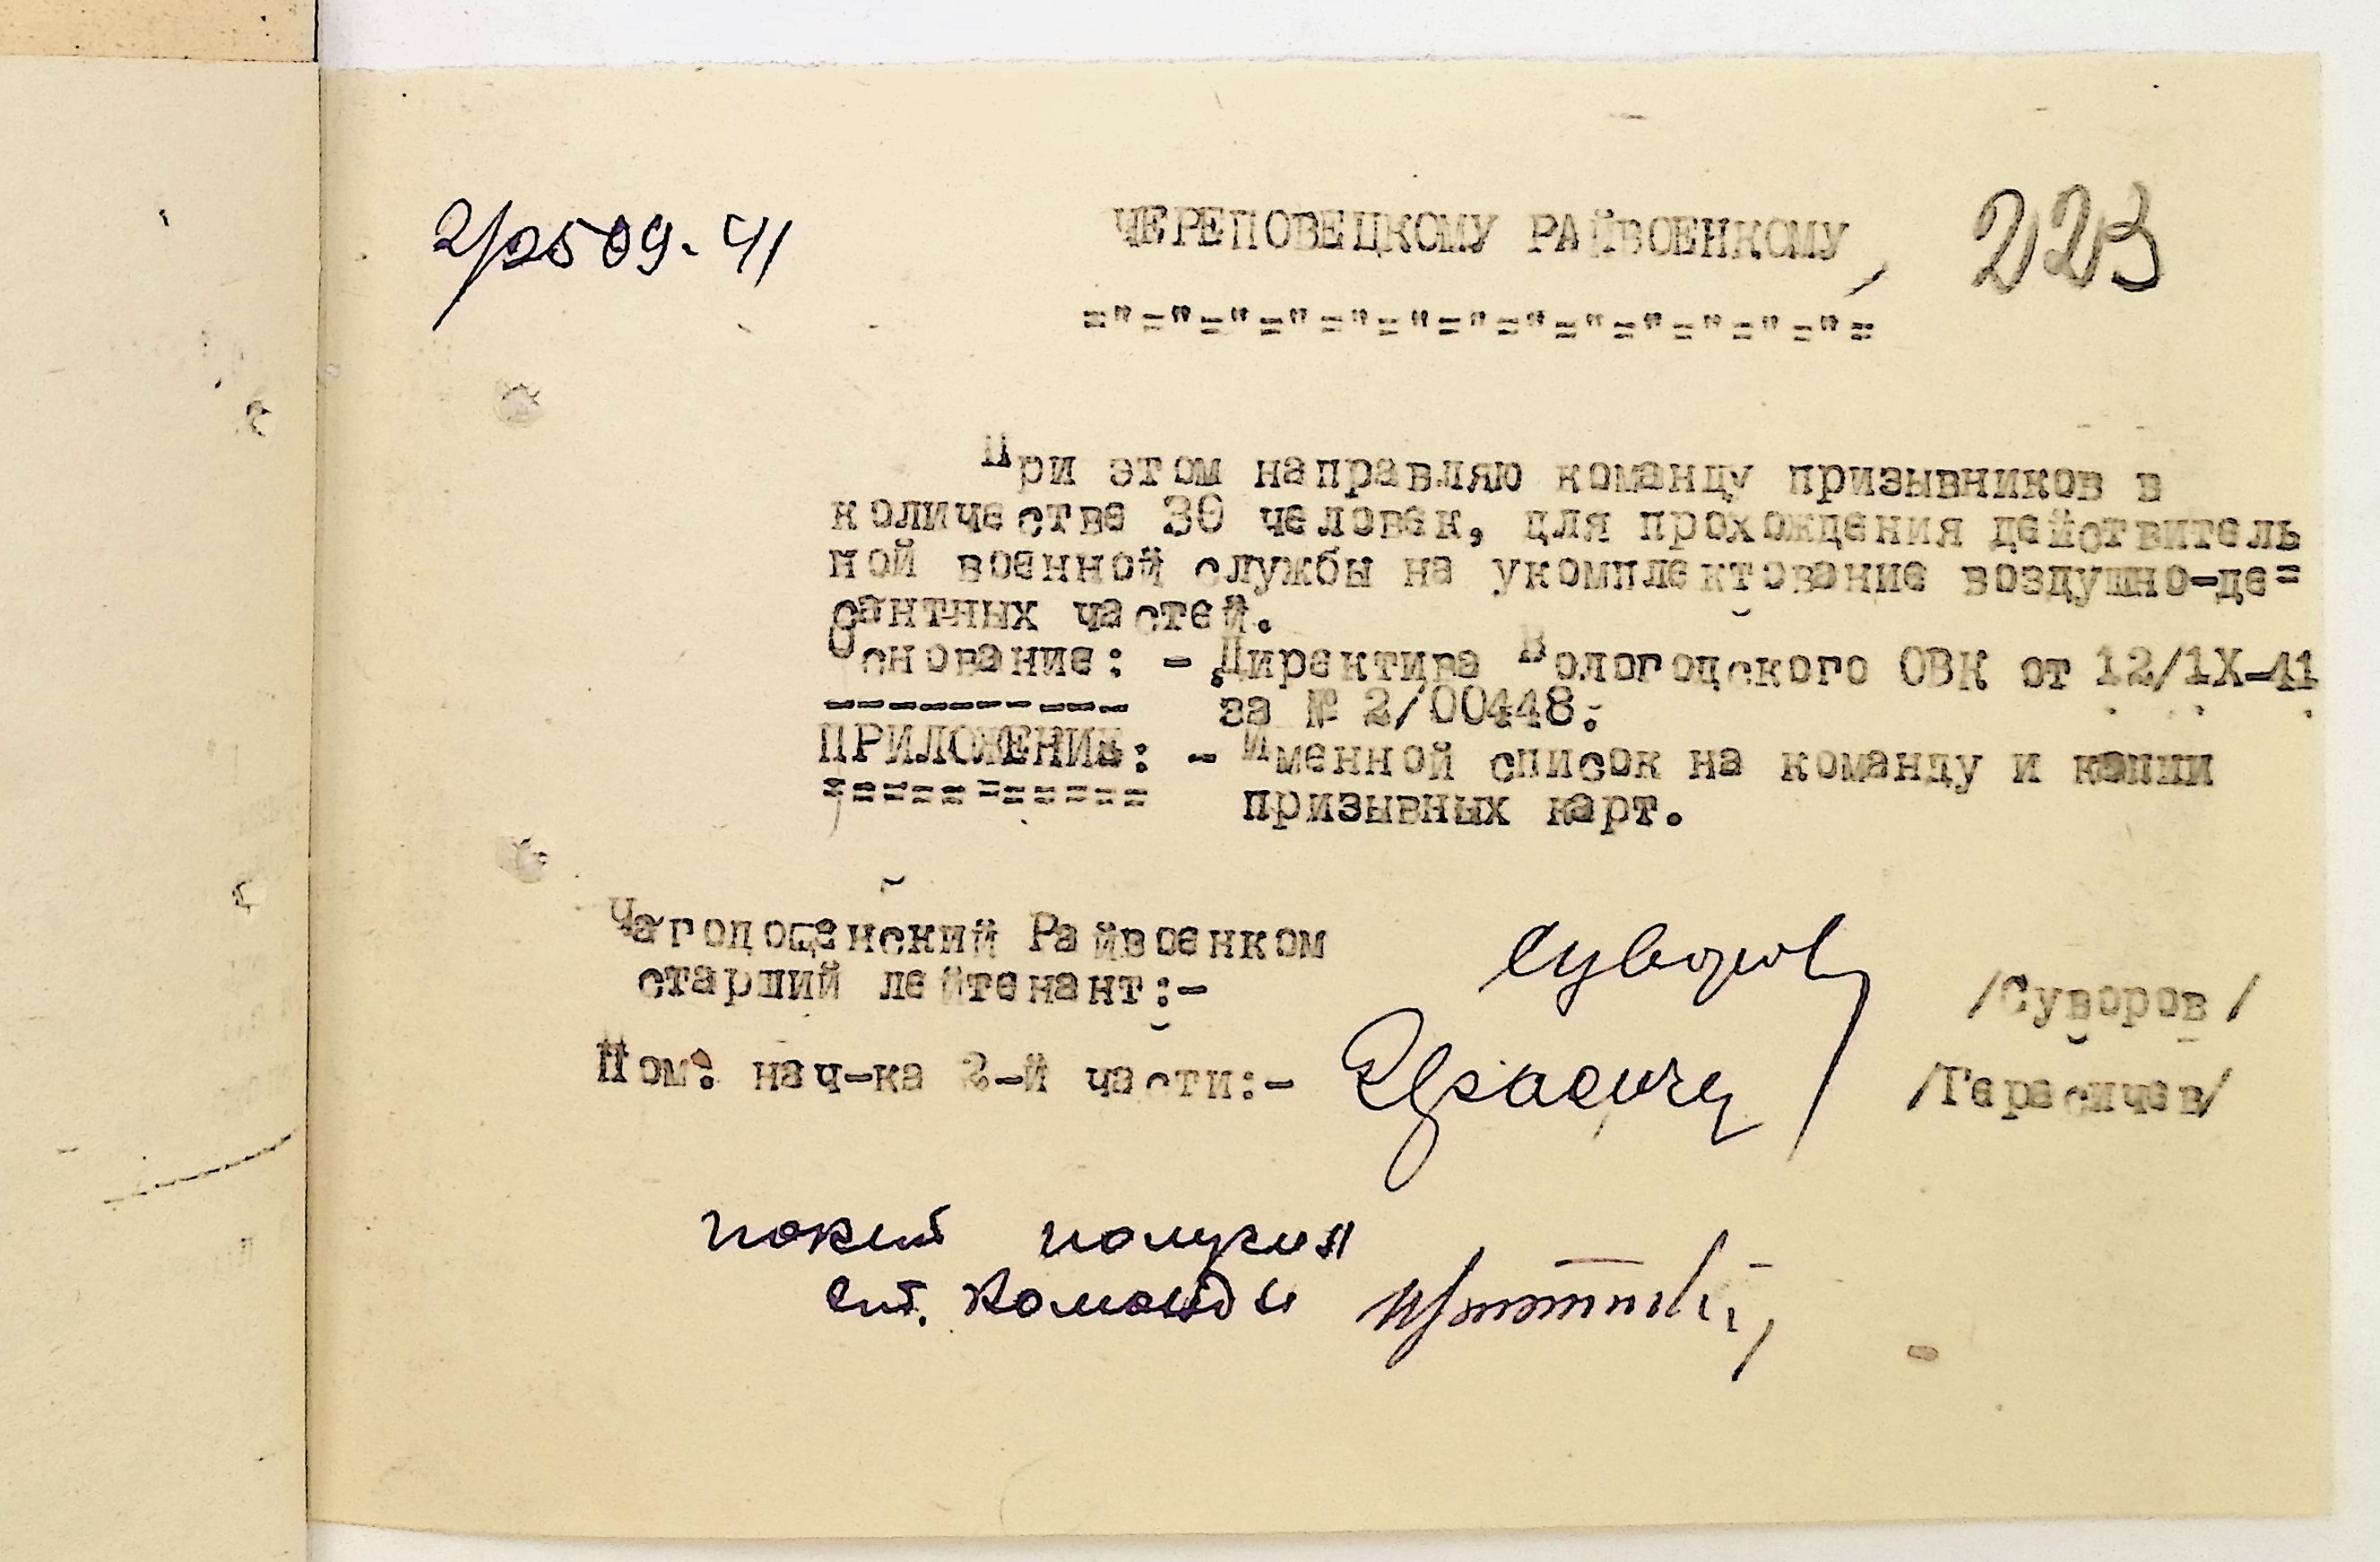 ЧЕРЕПОВЕЦКОМУ РАЙВОЕНКОМУ, 223
="="="="="="="="="="="="="=
При этом направляю команду призывников в
количестве 30 человек, для прохождения действитель
ной военной службы на укомплектование воздушно-де=
сантных частей.
Основание: - Директива Вологодского ОВК от 12/1Х-41
----------- за № 2/00448.
ПРИЛОЖЕНИЕ: - Именной список на команду и копии
=========== призывных карт.
Чагодощенский Райвоенком
старший лейтенант:- Суворов /Суворов/
Пом. нач-ка 2-й части:- Герасичев /Герасичев/
получил
ст. команды